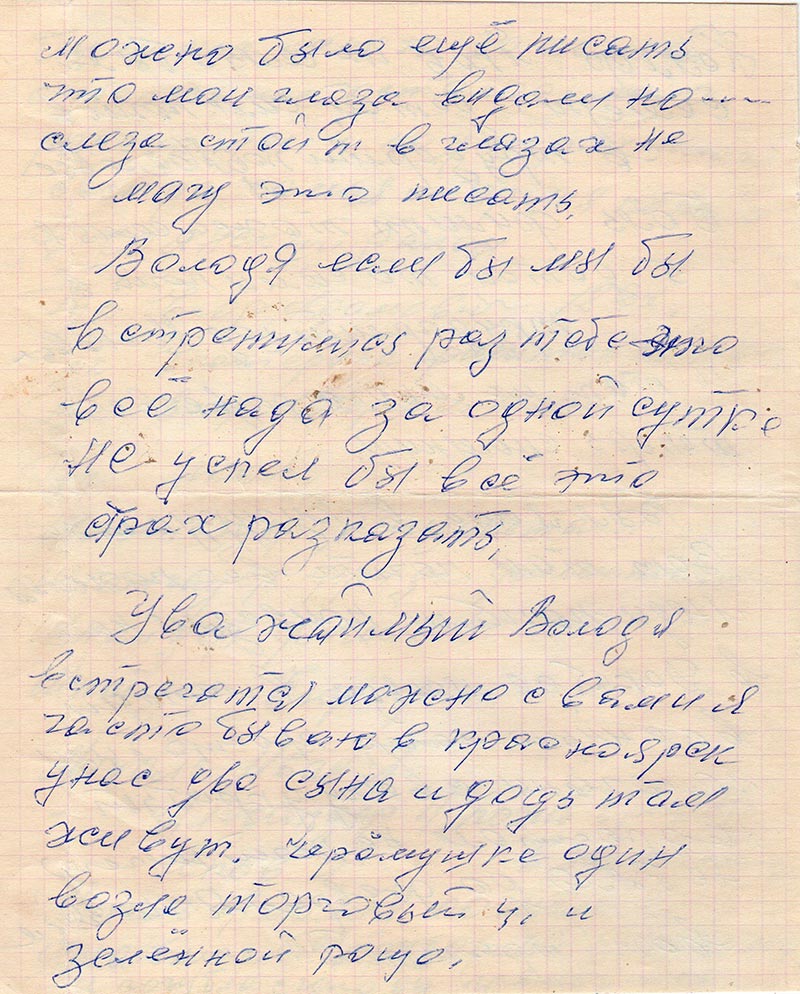 можно было ещё писать
что мои глаза видали но----
слеза стойт в глазах не
магу это писать,
Володя если бы мы бы
встретились раз тебе это
всё нада за одной сутке
не успел бы всё это
страх разказать,
Уважаймый Володя
встречатся можно с вами я
часто бываю в красноярск
унас два сына и дочь там
живут. Черёмушке один
возле торговый ц, и
зелённой рощо,